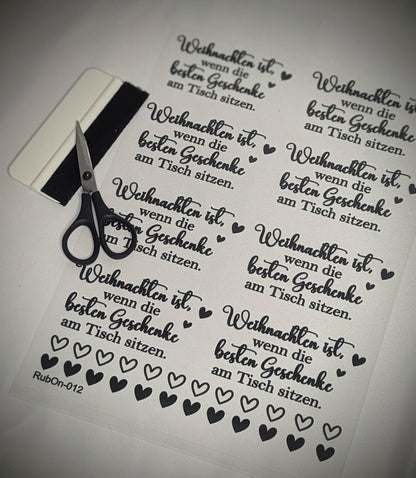 Weihnachten ist,
wenn die
besten Geschenke
am Tisch sitzen.
Weihnachten ist,
wenn die
besten Geschenke
am Tisch sitzen.
Weihnachten ist,
wenn die
besten Geschenke
am Tisch sitzen.
Weihnachten ist,
wenn die
besten Geschenke
am Tisch sitzen.
Weihnachten ist,
wenn die
besten Geschenke
am Tisch sitzen.
Weihnachten ist,
wenn die
besten Geschenke
am Tisch sitzen.
Weihnachten ist,
wenn die
besten Geschenke
am Tisch sitzen.
Weihnachten ist,
wenn die
besten Geschenke
am Tisch sitzen.
RubOn-012